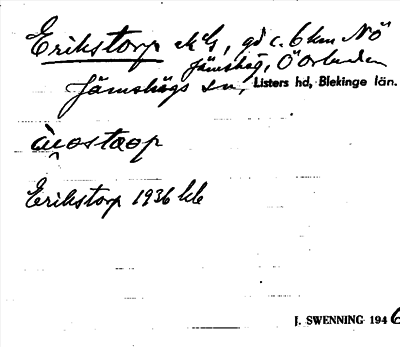 Erikstorp
gd c. 6 km NÖ
Jämshög, Ö
Jämshögs sn, Listers hd, Blekinge län.
Erikstorp 1936
J. SWENNING 1946